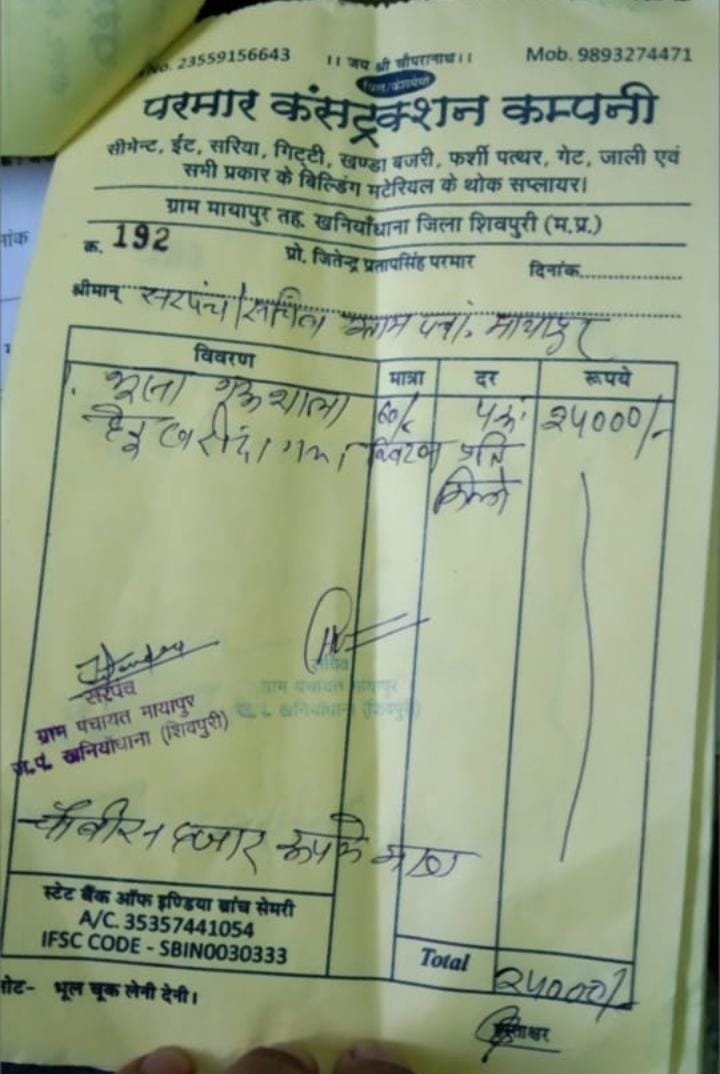 No. 23559156643
।। जय श्री चौपरानाथ।।
Mob. 9893274471
बिल/केशमेमो
परमार कंसट्रक्शन कम्पनी
सीमेन्ट, ईट, सरिया, गिट्टी, खण्डा बजरी, फर्शी पत्थर, गेट, जाली एवं
सभी प्रकार के बिल्डिंग मटेरियल के थोक सप्लायर।
ग्राम मायापुर तह. खनियाँधाना जिला शिवपुरी (म.प्र.)
क्र. 192
प्रो. जितेन्द्र प्रतापसिंह परमार
दिनांक..............
श्रीमान् सरपंच/सचिव ग्राम पंचा. मायापुर
विवरण मात्रा दर रूपये
1. भूसा गऊशाला 60/- 24000/-
हेतु खरीदा गया क्विंटल प्रति
किलो
सरपंच
ग्राम पंचायत मायापुर
ज.पं. खनियाँधाना (शिवपुरी)
सचिव
ग्राम पंचायत मायापुर
ज.पं. खनियाँधाना (शिवपुरी)
चौबीस हजार रूपये मात्र
स्टेट बैंक ऑफ इण्डिया ब्रांच सेमरी
A/C. 35357441054
IFSC CODE - SBIN0030333
Total 24000/-
नोट- भूल चूक लेनी देनी।
हस्ताक्षर